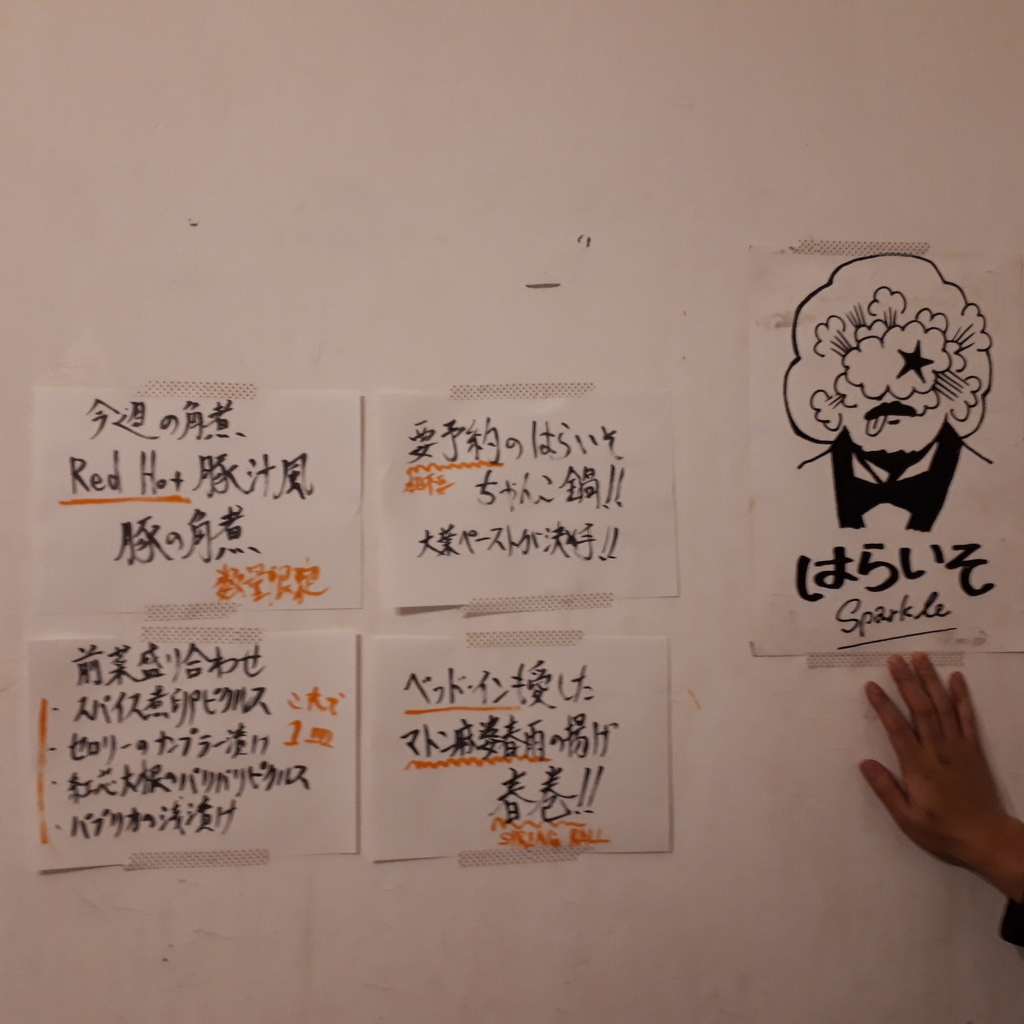 今週の角煮、
Red Hot 豚汁風
豚の角煮、
数量限定
要予約のはらいそ
ちゃんこ鍋!!
大葉ペーストが決め手!!
前菜盛り合わせ
・スパイス煮卵ピクルス
・セロリーのナンプラー漬け
・紅芯大根のパリパリピクルス
・パプリカの浅漬け
これで
1皿
ベッド・インも愛した
マトン麻婆春雨の揚げ
春巻!!
SPRING RALL
はらいそ
Sparkle